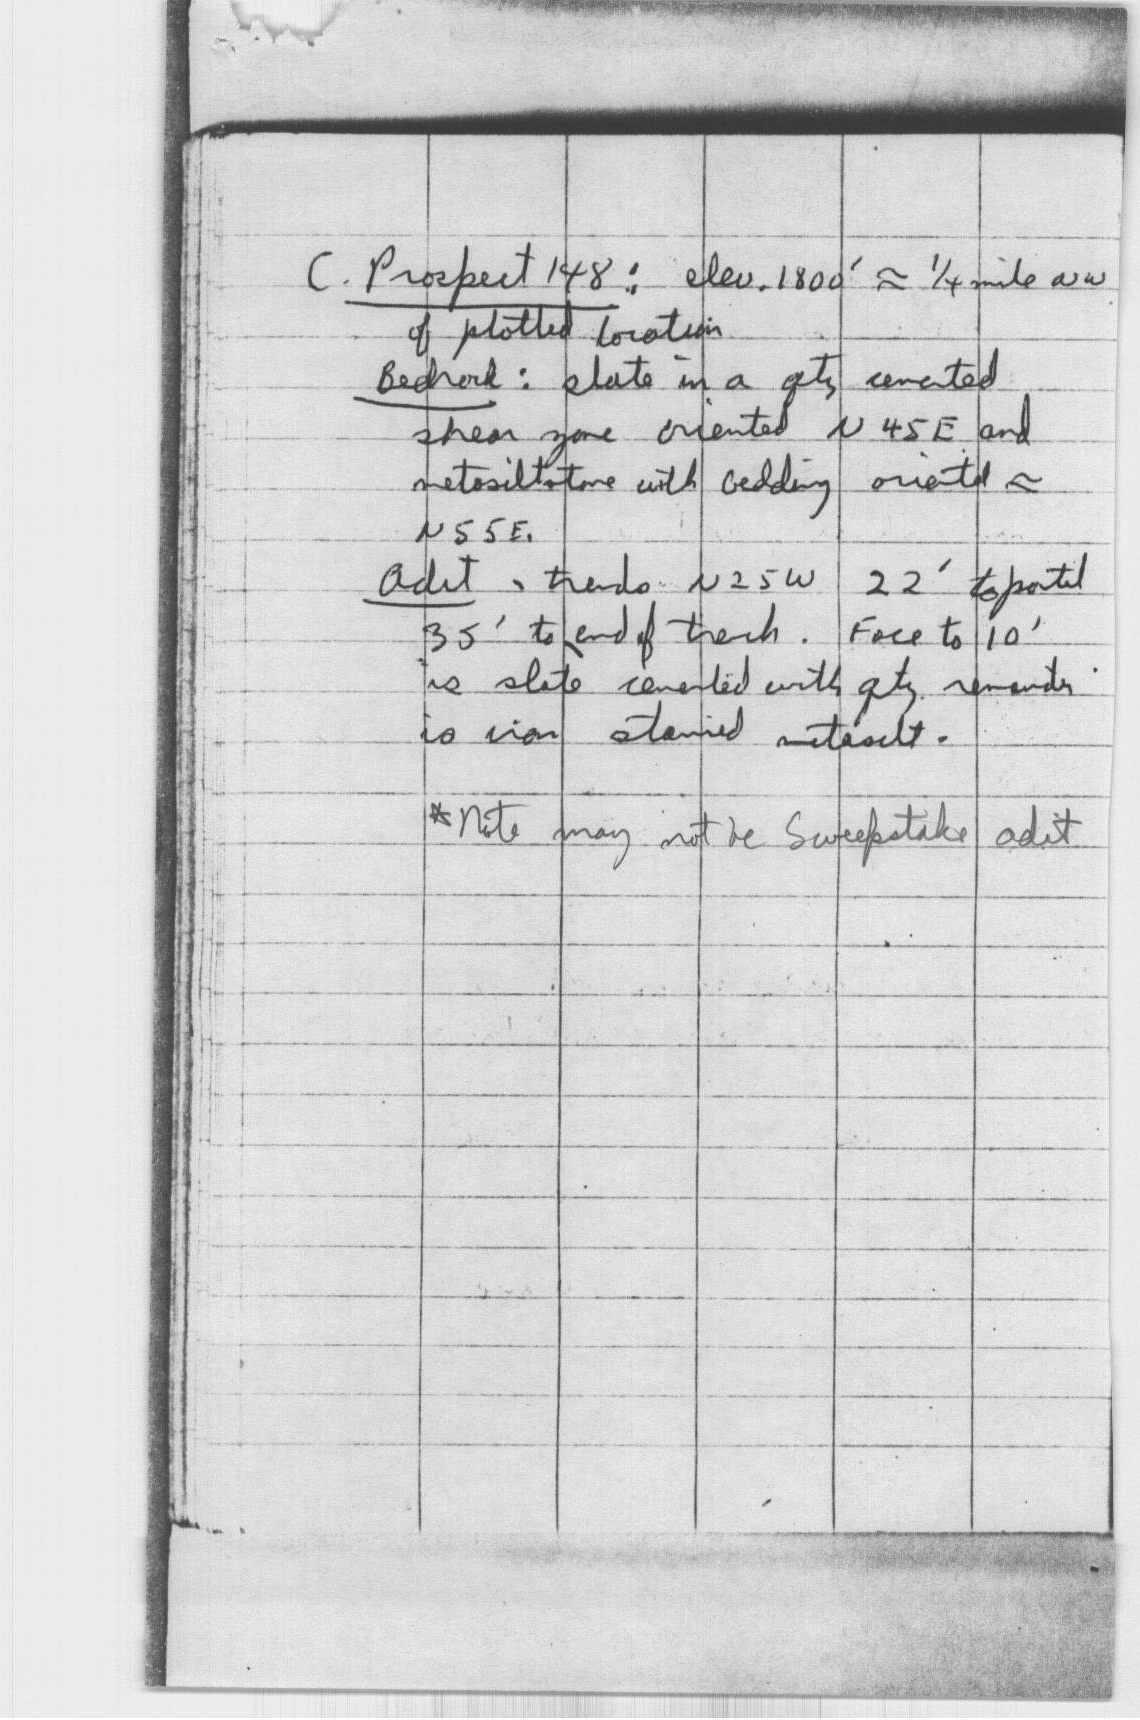 C. Prospect 148: elev. 1800' ≈ 1/4 mile NW
of plotted location
Bedrock: slate in a qtz cemented
shear zone oriented N45E and
metasiltstone with bedding oriented ≈
N55E.
Adit - trends N25W 22' to portal
35' to end of trench. Face to 10'
is slate cemented with qtz. remainder
is iron stained metasilt.
*Note may not be Sweepstake adit